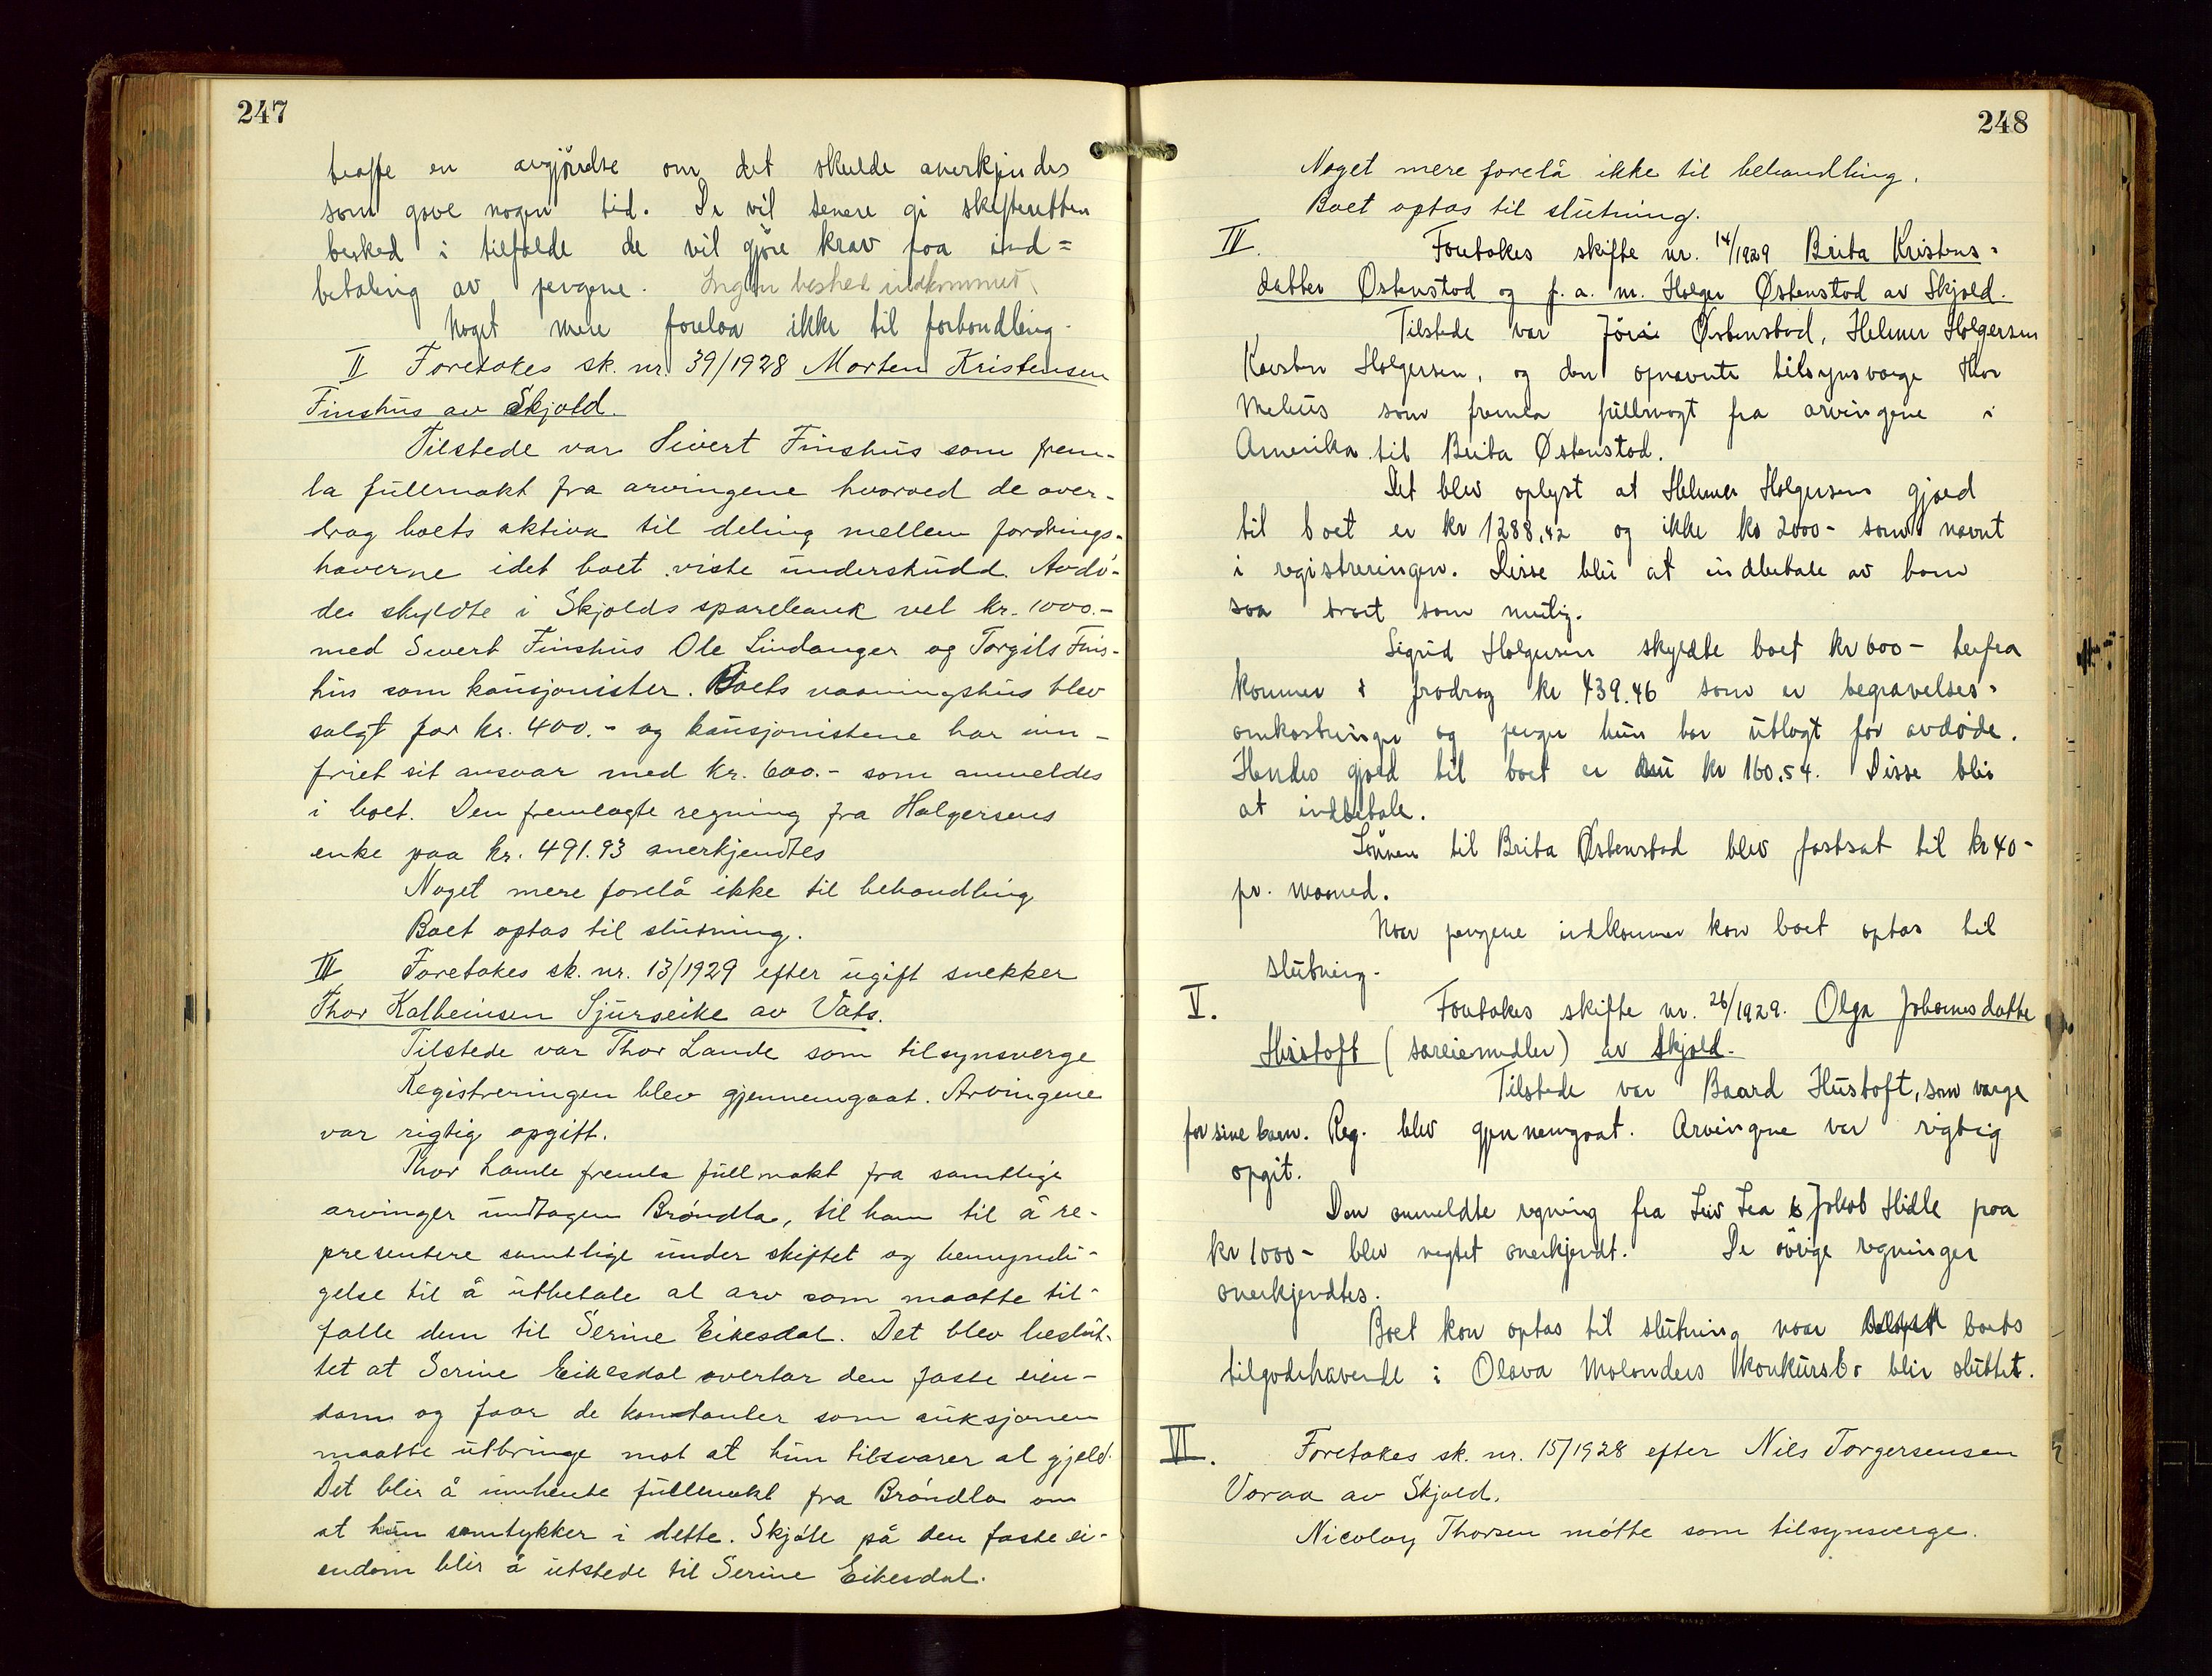 247
træffe en avgjørelse om det skulde anerkjendes
som gave nogen tid. De vil senere gi skifteretten
besked i tilfælde de vil gjøre krav paa ind=
betaling av pengene. Ingen beskel indkommet.
Noget mere forelaa ikke til forhandling.
II Foretokes sk. nr. 39/1928 Morten Kristensen
Finshus av Skjold.
Tilstede var Sivert Finshus som frem-
la fullmakt fra arvingene hvorved de over-
drog boets aktiva til deling mellem fordrings-
haverne idet boet viste underskudd. Avdø-
de skyldte i Skjolds sparebank vel kr. 1000.-
med Sivert Finshus Ole Lindanger og Torgils Fins-
hus som kausjonister. Boets vaaningshus blev
solgt for kr. 400.- og kausjonistene har inn-
friet sit ansvar med kr. 600.- som anmeldes
i boet. Den fremlagte regning fra Holgersens
enke paa kr. 491.93 anerkjendtes
Noget mere forelå ikke til behandling
Boet optas til slutning.
III Foretokes sk. nr. 13/1929 efter ugift snekker
Thor Kolbeinsen Sjurseike av Vats.
Tilstede var Thor Lande som tilsynsverge
Registreringen blev gjennemgaat. Arvingene
var rigtig opgitt.
Thor Lande fremla fullmakt fra samtlige
arvinger undtagen Brøndla, til ham til å re-
presentere samtlige under skiftet og bemyndi-
gelse til å utbetale al arv som maatte til-
falle dem til Serine Eikesdal. Det blev beslut-
tet at Serine Eikesdal overtar den faste eien-
dom og faar de kontanter som auksjonen
maatte utbringe mot at hun tilsvarer al gjeld.
Det blir å innhente fullmakt fra Brøndla om
at hun samtykker i dette. Skjøte på den faste ei-
endom blir å utstede til Serine Eikesdal.
248
Noget mere forelå ikke til behandling.
Boet optas til slutning.
IV. Foretokes skifte nr. 14/1929 Brita Kristens-
datter Østenstad og f. a. m. Holger Østenstad av Skjold.
Tilstede var Østenstad, Helmer Holgersen
Karsten Holgersen, og den opnævnte tilsynsværge Thor
Mehus som fremla fullmagt fra arvingene i
Amerika til Brita Østenstad.
Det blev oplyst at Helmer Holgersens gjæld
til boet er kr 1288,42 og ikke kr 2000- som nævnt
i registreringen. Disse bli at indbetale av ham
saa snart som mulig.
Sigrid Holgersen skyldte boet kr 600- herfra
kommer i fradrag kr 439.46 som er begravelses-
omkostninger og penger hun har utlagt for avdøde.
Hendes gjæld til boet er kr 160.54. Disse blir
at indbetale.
Lønnen til Brita Østenstad blev fastsat til kr 40-
pr. maaned.
Naar pengene indkommer kan boet optas til
slutning.
V. Foretokes skifte nr. 26/1929. Olga Johannesdatter
Hustoft (særeiemidler) av Skjold.
Tilstede var Baard Hustoft, som værge
for sine barn. Reg. blev gjennemgaat. Arvingene var rigtig
opgit.
Den anmeldte regning fra Leiv Lea & Jakob Hidle paa
kr 1000- blev negtet anerkjendt. De øvrige regninger
anerkjendtes.
Boet kan optas til slutning naar boets
tilgodehavende i Olava Molanders konkursbo blir sluttet.
VI. Foretokes sk. nr. 15/1928 efter Nils Torgersensen
Voraa av Skjold.
Nicolay Thorsen møtte som tilsynsverge.